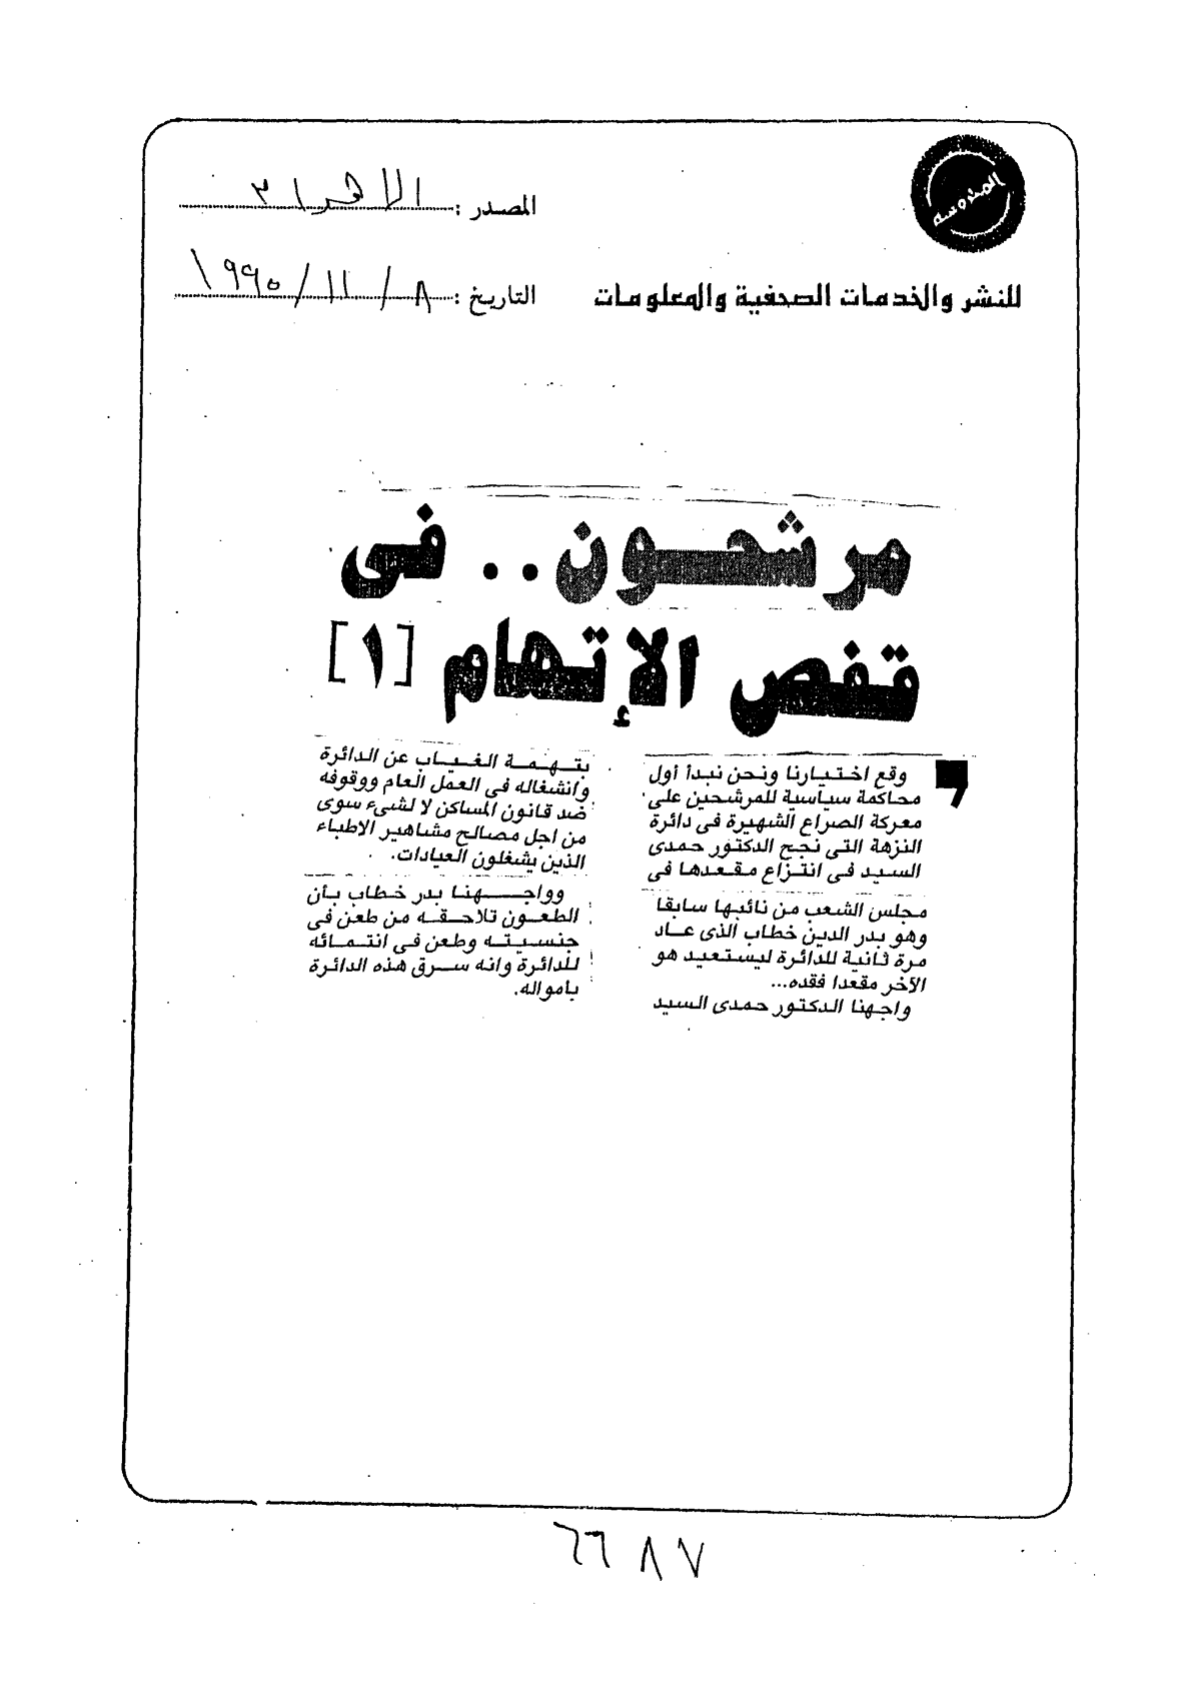 المحروسة
المصدر : الاهرام
للنشر والخدمات الصحفية والمعلومات
التاريخ : ٨ / ١١ / ١٩٩٠
مرشحون .. فى
قفص الإتهام [١]
وقع اختيارنا ونحن نبدأ أول
محاكمة سياسية للمرشحين على
معركة الصراع الشهيرة فى دائرة
النزهة التى نجح الدكتور حمدى
السيد فى انتزاع مقعدها فى
مجلس الشعب من نائبها سابقا
وهو بدر الدين خطاب الذى عاد
مرة ثانية للدائرة ليستعيد هو
الآخر مقعدا فقده...
واجهنا الدكتور حمدى السيد
بتهمة الغياب عن الدائرة
وانشغاله فى العمل العام ووقوفه
ضد قانون المساكن لا لشىء سوى
من اجل مصالح مشاهير الاطباء
الذين يشغلون العيادات.
وواجهنا بدر خطاب بأن
الطعون تلاحقه من طعن فى
جنسيته وطعن فى انتمائه
للدائرة وانه سرق هذه الدائرة
بامواله.
٦٦٨٧